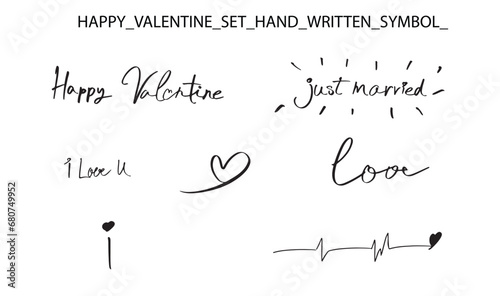 HAPPY_VALENTINE_SET_HAND_WRITTEN_SYMBOL_
Happy Valentine
just married
i Love U
love
i
Adobe Stock | #680749952